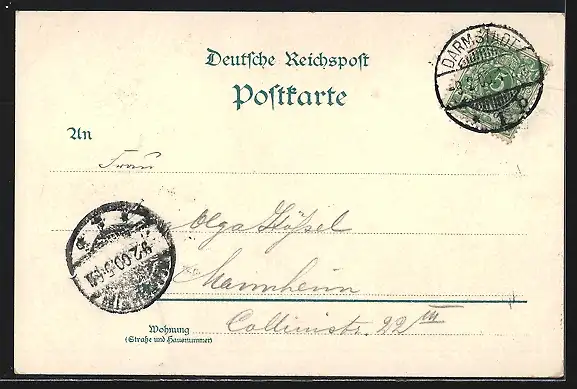 Deutsche Reichspost
Postkarte
DARMSTADT
5
1 b
An
Frau
Olga Hößel
Mannheim
9.2.00
Collinistr. 22 III
Wohnung
(Straße und Hausnummer)